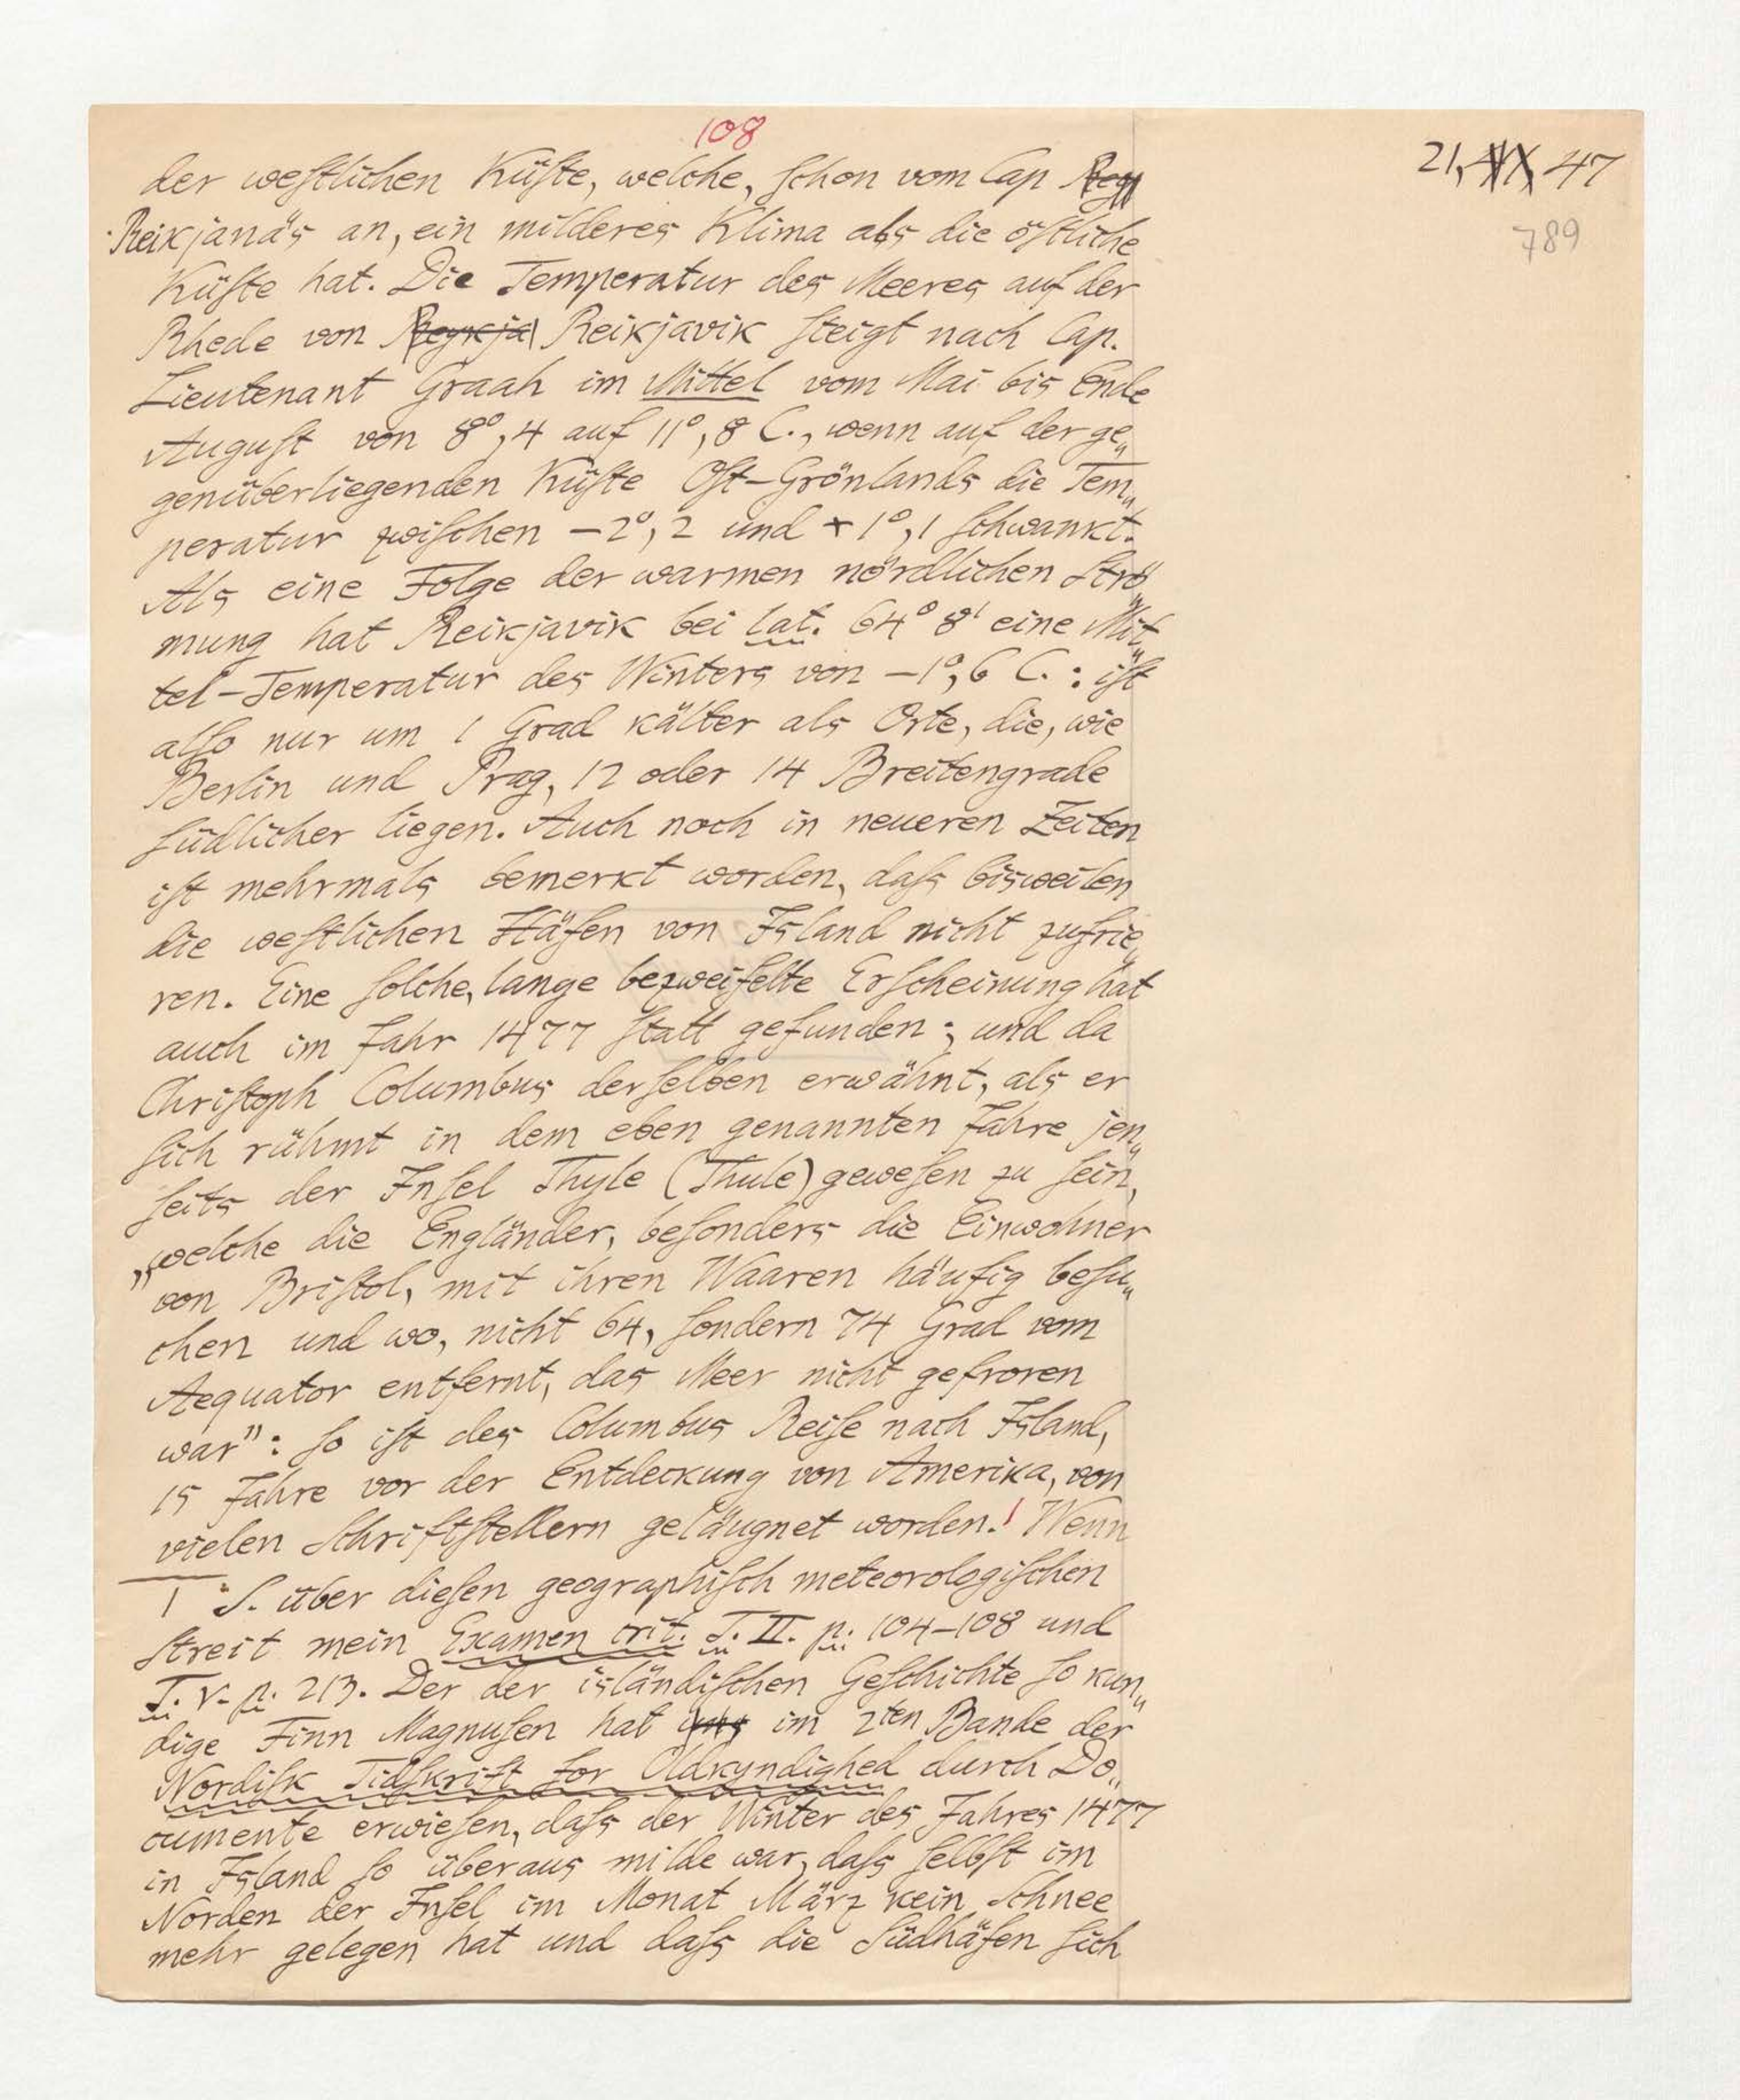 108
21, XIX 47
789
der westlichen Küste, welche, schon vom Cap Rey
Reikjanäs an, ein milderes Klima als die östliche
Küste hat. Die Temperatur des Meeres auf der
Rhede von Reykja Reikjavik steigt nach Cap.
Lieutenant Graah im Mittel vom Mai bis Ende
August von 8°,4 auf 11°,8 C., wenn auf der ge„
genüberliegenden Küste Ost-Grönlands die Tem„
peratur zwischen –2°,2 und +1°,1 schwankt.
Als eine Folge der warmen nördlichen Strö„
mung hat Reikjavik bei lat. 64° 8' eine Mit„
tel-Temperatur des Winters von –1°,6 C.: ist
also nur um 1 Grad kälter als Orte, die, wie
Berlin und Prag, 12 oder 14 Breitengrade
südlicher liegen. Auch noch in neueren Zeiten
ist mehrmals bemerkt worden, dass bisweilen
die westlichen Häfen von Island nicht zufrie„
ren. Eine solche, lange bezweifelte Erscheinung hat
auch im Jahr 1477 statt gefunden; und da
Christoph Columbus derselben erwähnt, als er
sich rühmt in dem eben genannten Jahre jen„
seits der Insel Thyle (Thule) gewesen zu sein,
„welche die Engländer, besonders die Einwohner
von Bristol, mit ihren Waaren häufig besu„
chen und wo, nicht 64, sondern 74 Grad vom
Aequator entfernt, das Meer nicht gefroren
war": so ist des Columbus Reise nach Island,
15 Jahre vor der Entdeckung von Amerika, von
vielen Schriftstellern geläugnet worden.1 Wenn
1 S. über diesen geographisch meteorologischen
Streit mein Examen crit. T. II. p. 104–108 und
T. V. p. 213. Der der isländischen Geschichte so kun„
dige Finn Magnusen hat uns im 2ten Bande der
Nordisk Tidskrift for Oldkyndighed durch Do„
cumente erwiesen, dass der Winter des Jahres 1477
in Island so überaus milde war, dass selbst im
Norden der Insel im Monat März kein Schnee
mehr gelegen hat und dass die Südhäfen sich